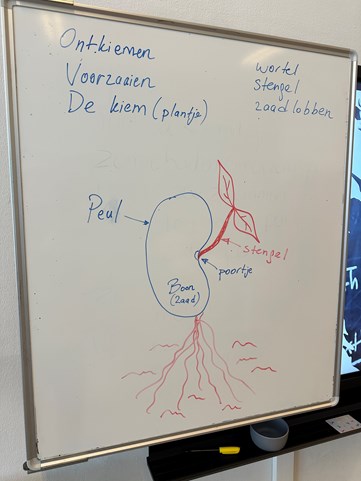 Ontkiemen
Voorzaaien
De kiem (plantje)
wortel
stengel
zaadlobben
Peul
stengel
poortje
Boon
(zaad)